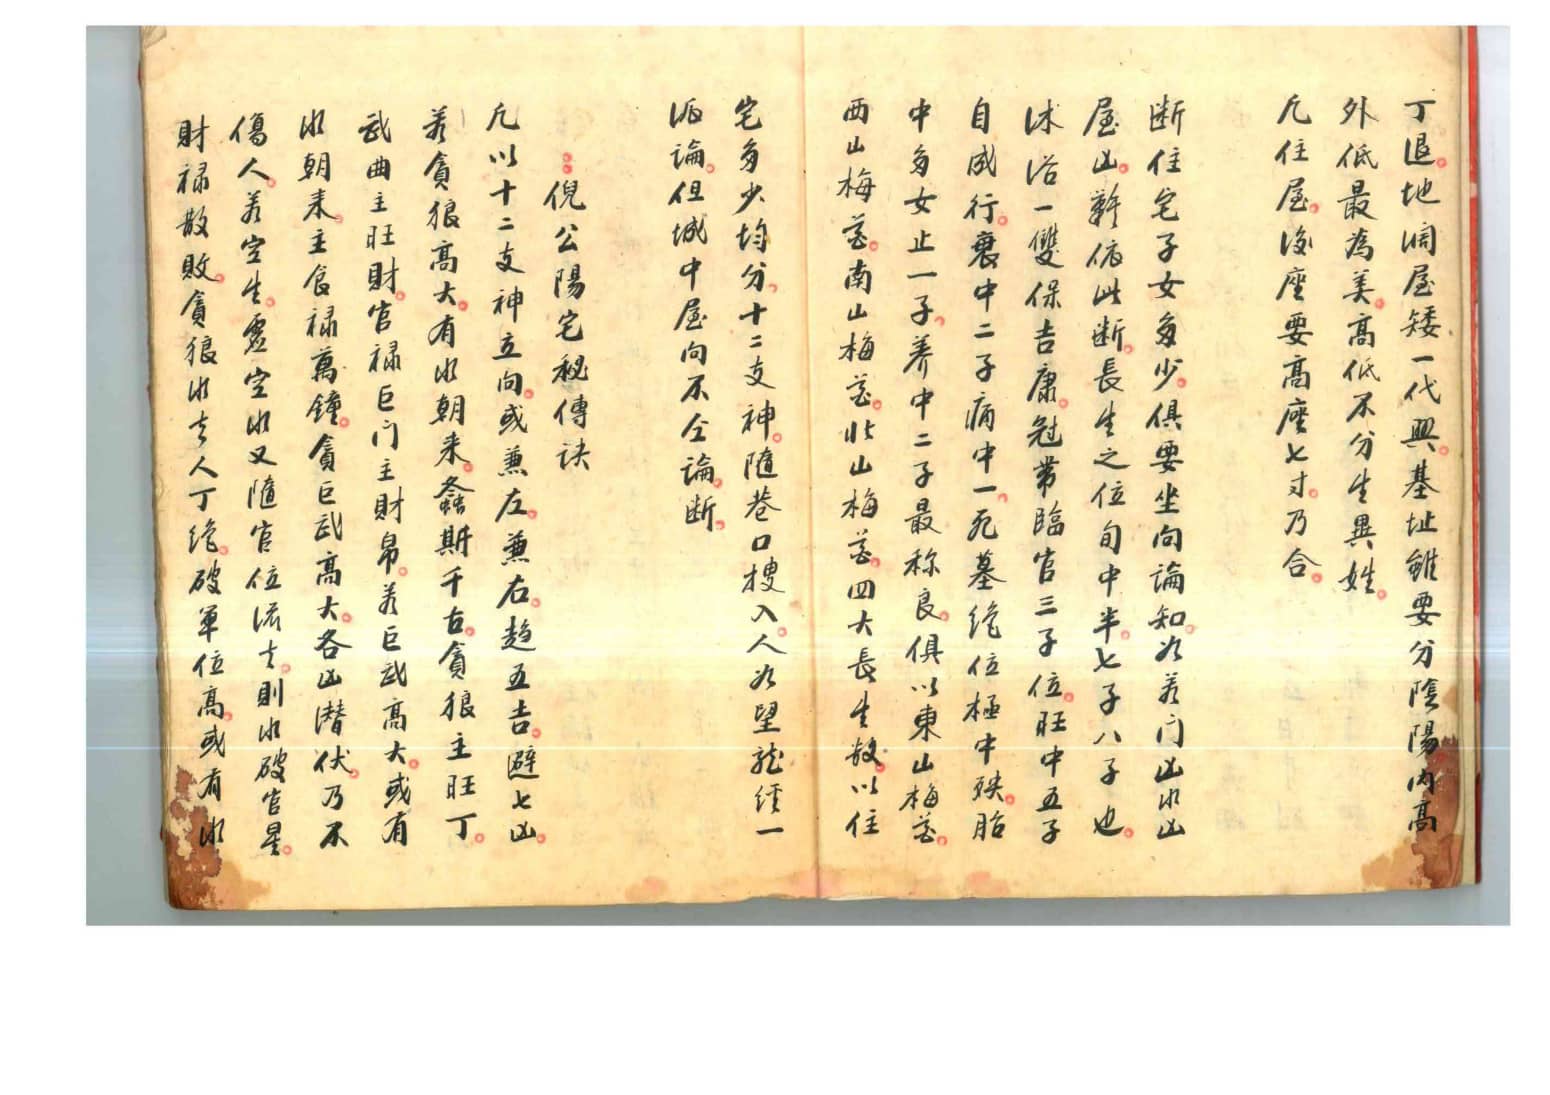 丁退。地濶屋矮一代興。基址雖要分陰陽內高
外低最為美。高低不分生異姓。
凡住屋。後座要高座七寸。乃合。
断住宅子女多少。俱要坐向論知。次羙门凶水凶
屋凶。斷依此断。長生之位旬中半。七子八子也。
沐浴一雙保吉康。冠带臨官三子位。旺中五子
自成行。衰中二子病中一。死墓绝位極中殃。胎
中多女止一子。养中二子最称良。俱以東山梅花。
西山梅花。南山梅花。北山梅花。四大長生散。以住
宅多少均分。十二支神。隨巷口搜入。人次望龙经一
派論。但城中屋向不仝論。断。
倪公陽宅秘傳訣
凡以十二支神立向。或兼左。兼右。趋五吉。避七凶。
若貪狼高大。有水朝来。螽斯千古。貪狼主旺丁。
武曲主旺財。官禄巨门主財帛。若巨武高大。或有
水朝来。主食禄萬鐘。貪巨武高大。各凶潜伏。乃不
傷人。若空生。虚空水又隨官位流去。則水破官星。
財禄散敗。貪狼水去人丁绝。破軍位高。或有水